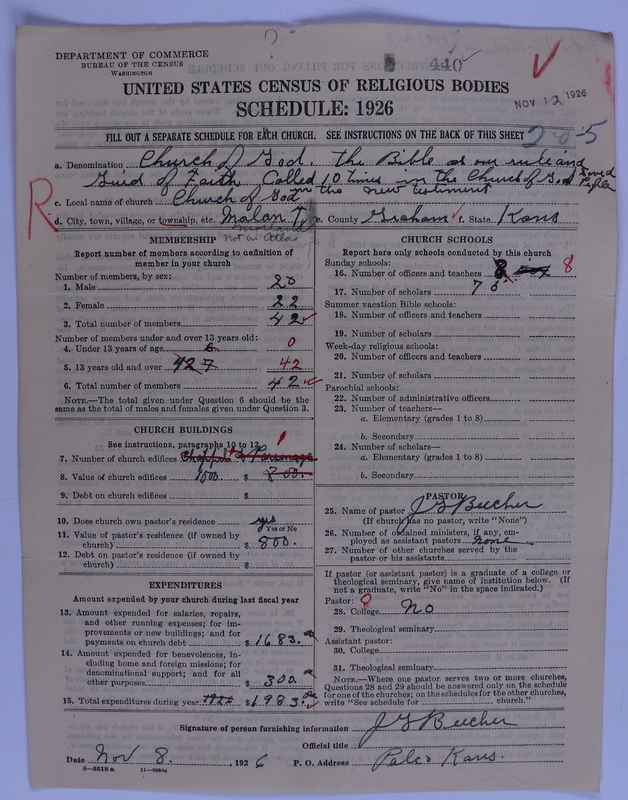 440
DEPARTMENT OF COMMERCE
BUREAU OF THE CENSUS
WASHINGTON
UNITED STATES CENSUS OF RELIGIOUS BODIES
NOV 12 1926
SCHEDULE: 1926
FILL OUT A SEPARATE SCHEDULE FOR EACH CHURCH. SEE INSTRUCTIONS ON THE BACK OF THIS SHEET
20-5
a. Denomination Church of God. The Bible as our rule and
Guid of Faith Called 10 times in the Church of God Saved People
in the new testiment
c. Local name of church Church of God
d. City, town, village, or township, etc. e. County Graham f. State Kans
Not in Atlas
R
MEMBERSHIP
Report number of members according to definition of
member in your church
Number of members, by sex:
1. Male 20
2. Female 22
3. Total number of members 42
Number of members under and over 13 years old:
4. Under 13 years of age 6 0
5. 13 years old and over 42 7 42
6. Total number of members 42
NOTE.—The total given under Question 6 should be
the same as the total of males and females given under Question 3.
CHURCH BUILDINGS
See instructions, paragraphs 10 to 12
7. Number of church edifices Chappel + Parsonage 1
8. Value of church edifices 1000. $ 800.
9. Debt on church edifices $
10. Does church own pastor's residence yes
Yes or No
11. Value of pastor's residence (if owned by
church) $ 800.
12. Debt on pastor's residence (if owned by
church) $
EXPENDITURES
Amount expended by your church during last fiscal year
13. Amount expended for salaries, repairs,
and other running expenses; for im-
provements or new buildings; and for
payments on church debt $ 1683.00
14. Amount expended for benevolences, in-
cluding home and foreign missions; for
denominational support; and for all
other purposes $ 300.00
15. Total expenditures during year $ 1983.00
CHURCH SCHOOLS
Report here only schools conducted by this church
Sunday schools:
16. Number of officers and teachers 8 8
17. Number of scholars 75
Summer vacation Bible schools:
18. Number of officers and teachers
19. Number of scholars
Week-day religious schools:
20. Number of officers and teachers
21. Number of scholars
Parochial schools:
22. Number of administrative officers
23. Number of teachers—
a. Elementary (grades 1 to 8)
b. Secondary
24. Number of scholars—
a. Elementary (grades 1 to 8)
b. Secondary
PASTOR
25. Name of pastor J G Beecher
(If church has no pastor, write "None")
26. Number of ordained ministers, if any, em-
ployed as assistant pastors none
27. Number of other churches served by the
pastor or his assistants
If pastor (or assistant pastor) is a graduate of a college or
theological seminary, give name of institution below. (If
not a graduate, write "No" in the space indicated.)
Pastor:
28. College No
29. Theological seminary
Assistant pastor:
30. College
31. Theological seminary
NOTE.—Where one pastor serves two or more churches,
Questions 28 and 29 should be answered only on the schedule
for one of the churches; on the schedules for the other churches,
write "See schedule for church."
Signature of person furnishing information J G Beecher
Official title
Date Nov 8. , 1926 P. O. Address Palco Kans.
8—5518a 11—9554